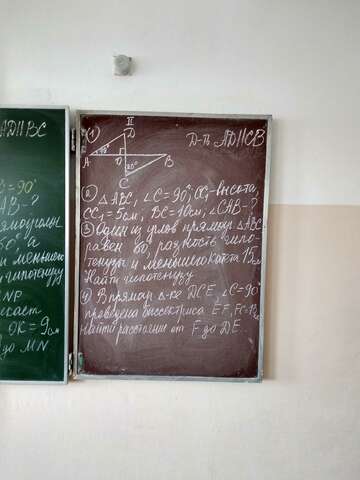 АD||BC
B=90°
AB-?
NP
DK=9см
до MN
II
① D Д-ть AD||CB
A O B
20°
C
② △ABC, ∠C=90°, CC₁-высота,
CC₁=5см, BC=10см, ∠CAB-?
③ Один из углов прямоуг △ABC
равен 60°, разность гипо-
тенузы и меньшего катета 15см
Найти гипотенузу
④ В прямоуг △-ке DCE, ∠C=90°
проведена биссектриса EF, FC=13см
найти расстояни от F до DE.